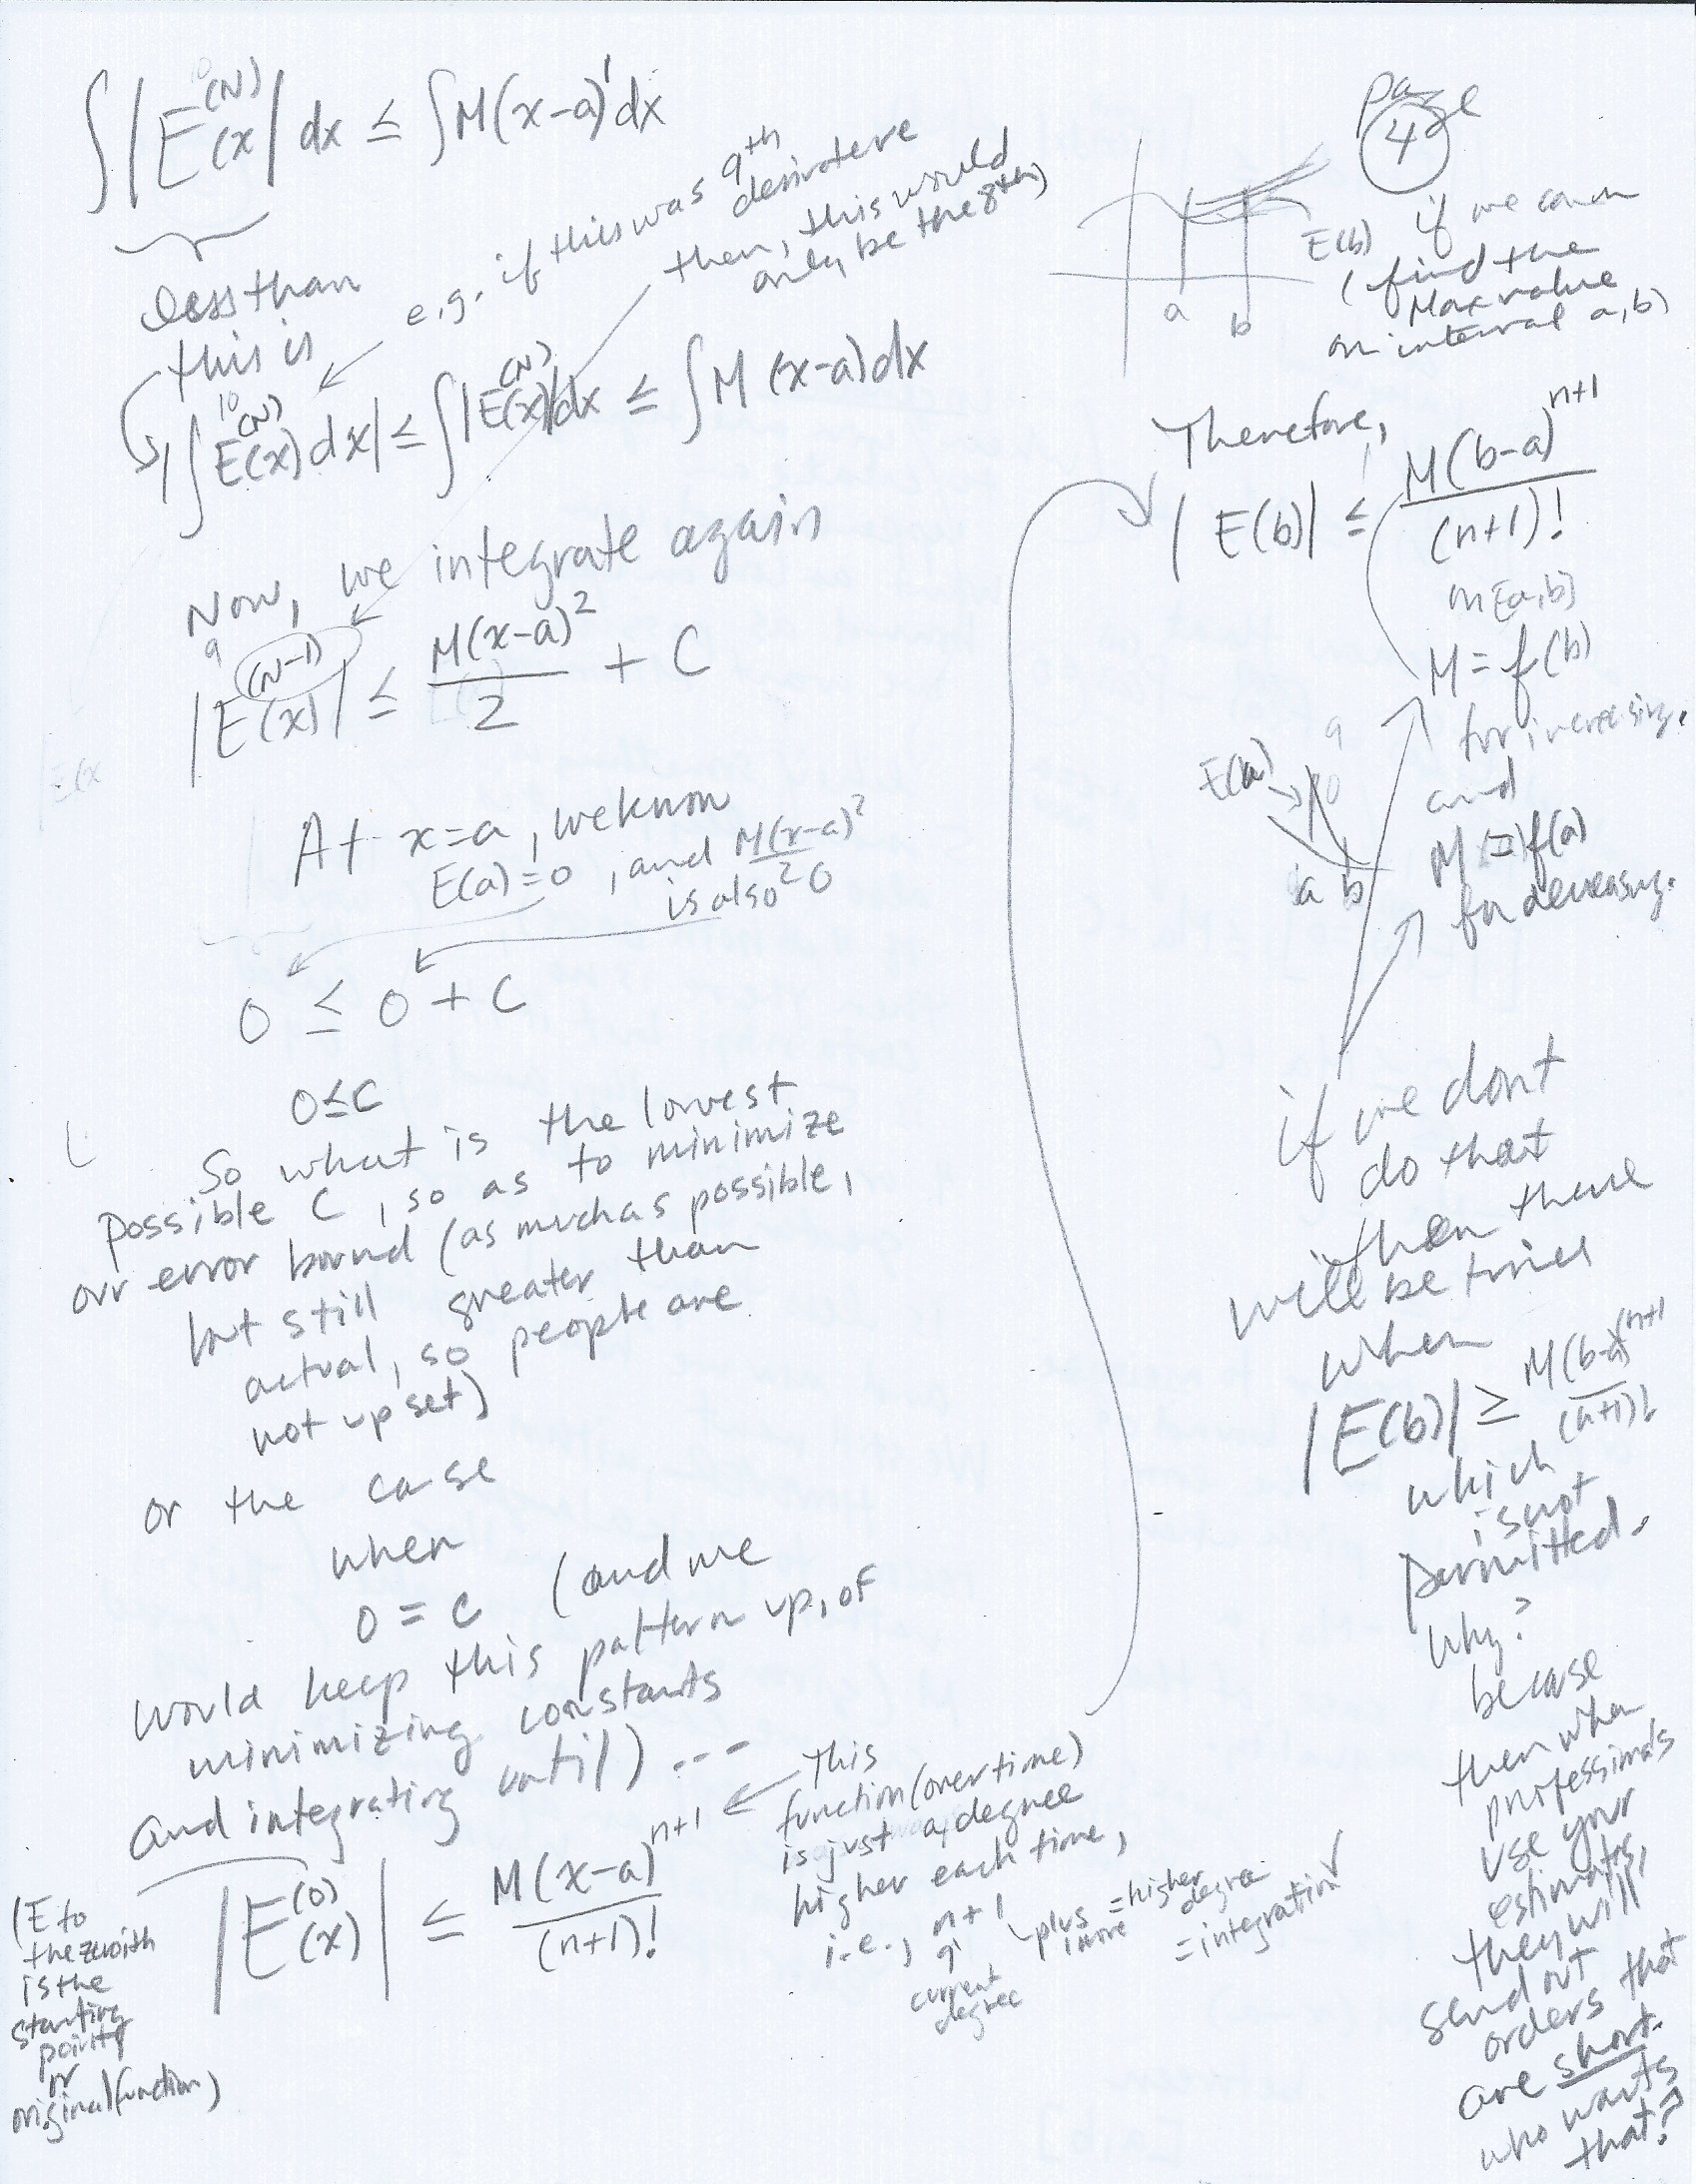 ∫|E^(N)(x)| dx ≤ ∫M(x-a)^1 dx
less than
this is
e.g. if this was 9th
derivative
then, this would
only be the 8th)
10
|∫E^(N)(x)dx| ≤ ∫|E^(N)(x)|dx ≤ ∫M(x-a)dx
Now, we integrate again
9
|E^(N-1)(x)| ≤ M(x-a)^2/2 + C
At x=a, we know
E(a)=0, and M(x-a)^2/2
is also 0
0 ≤ 0 + C
0≤C
So what is the lowest
possible C, so as to minimize
our error bound (as much as possible,
but still greater than
actual, so people are
not upset)
or the case
when
0 = C (and we
would keep this pattern up, of
minimizing constants
and integrating until) ---
|E^(0)(x)| ≤ M(x-a)^n+1/(n+1)!
(E to
the zeroith
is the
starting
point
or
original function)
This
function (over time)
is just a degree
higher each time,
i.e., n+1
current
degree
plus 1 more
=higher degree
=integration
page
4
a b
E(b) if we can
(find the
Max value
on interval a,b)
Therefore,
|E(b)| ≤ M(b-a)^n+1/(n+1)!
M = f(b)
for increasing.
and
M = f(a)
for decreasing.
E(a)
a b
if we dont
do that
then there
will be times
when
|E(b)| ≥ M(b-a)^(n+1)/(n+1)!
which
is not
permitted.
Why?
because
then when
professionals
use your
estimates,
they will
send out
orders that
are short.
who wants
that?